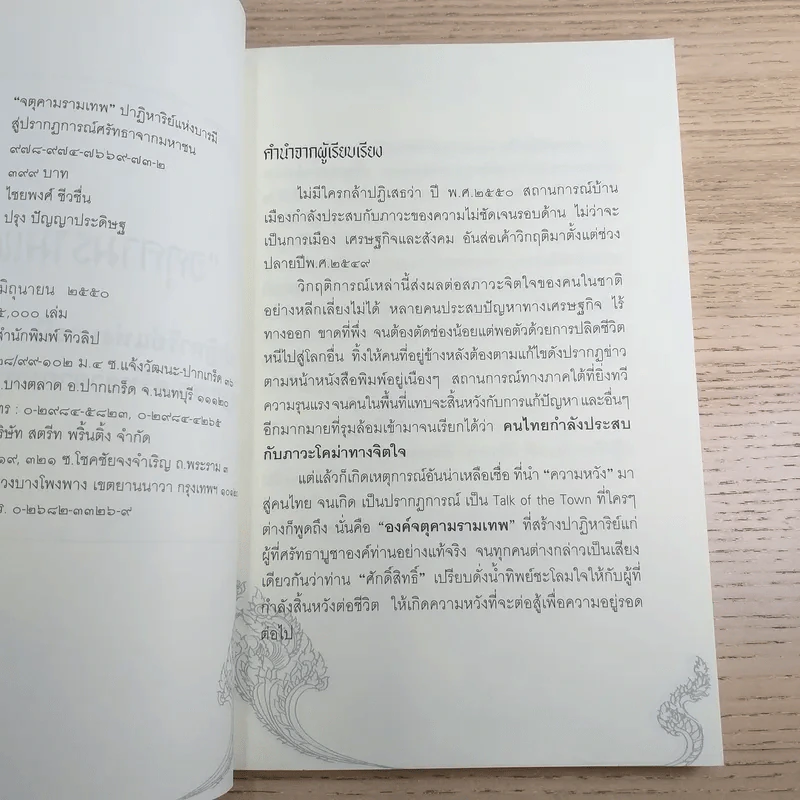 "จตุคามรามเทพ" ปาฏิหาริย์แห่งบารมี
สู่ปรากฏการณ์ศรัทธาจากมหาชน
๙๗๘-๙๗๔-๗๖๖๙-๗๓-๒
๓๙๙ บาท
ไชยพงศ์ ชีวชื่น
ปรุง ปัญญาประดิษฐ
มิถุนายน ๒๕๕๐
๕,๐๐๐ เล่ม
สำนักพิมพ์ ทิวลิป
๒๘/๙๙-๑๐๒ ม.๔ ซ.แจ้งวัฒนะ-ปากเกร็ด ๓๖
ต.บางตลาด อ.ปากเกร็ด จ.นนทบุรี ๑๑๑๒๐
โทร : ๐-๒๙๘๔-๕๘๒๓, ๐-๒๙๘๔-๔๒๖๕
บริษัท สตรีท พริ้นติ้ง จำกัด
๓๑๙, ๓๒๑ ซ.โชคชัยจงจำเริญ ถ.พระราม ๓
แขวงบางโพงพาง เขตยานนาวา กรุงเทพฯ ๑๐๑๒
โทร. ๐-๒๖๘๒-๓๓๒๖-๙
คำนำจากผู้เรียบเรียง
ไม่มีใครกล้าปฏิเสธว่า ปี พ.ศ.๒๕๕๐ สถานการณ์บ้าน
เมืองกำลังประสบกับภาวะของความไม่ชัดเจนรอบด้าน ไม่ว่าจะ
เป็นการเมือง เศรษฐกิจและสังคม อันส่อเค้าวิกฤติมาตั้งแต่ช่วง
ปลายปีพ.ศ.๒๕๔๙
วิกฤติการณ์เหล่านี้ส่งผลต่อสภาวะจิตใจของคนในชาติ
อย่างหลีกเลี่ยงไม่ได้ หลายคนประสบปัญหาทางเศรษฐกิจ ไร้
ทางออก ขาดที่พึ่ง จนต้องตัดช่องน้อยแต่พอตัวด้วยการปลิดชีวิต
หนีไปสู่โลกอื่น ทิ้งให้คนที่อยู่ข้างหลังต้องตามแก้ไขดังปรากฏข่าว
ตามหน้าหนังสือพิมพ์อยู่เนืองๆ สถานการณ์ทางภาคใต้ที่ยิ่งทวี
ความรุนแรงจนคนในพื้นที่แทบจะสิ้นหวังกับการแก้ปัญหา และอื่นๆ
อีกมากมายที่รุมล้อมเข้ามาจนเรียกได้ว่า คนไทยกำลังประสบ
กับภาวะโคม่าทางจิตใจ
แต่แล้วก็เกิดเหตุการณ์อันน่าเหลือเชื่อ ที่นำ "ความหวัง" มา
สู่คนไทย จนเกิด เป็นปรากฏการณ์ เป็น Talk of the Town ที่ใครๆ
ต่างก็พูดถึง นั่นคือ "องค์จตุคามรามเทพ" ที่สร้างปาฏิหาริย์แก่
ผู้ที่ศรัทธาบูชาองค์ท่านอย่างแท้จริง จนทุกคนต่างกล่าวเป็นเสียง
เดียวกันว่าท่าน "ศักดิ์สิทธิ์" เปรียบดั่งน้ำทิพย์ชะโลมใจให้กับผู้ที่
กำลังสิ้นหวังต่อชีวิต ให้เกิดความหวังที่จะต่อสู้เพื่อความอยู่รอด
ต่อไป